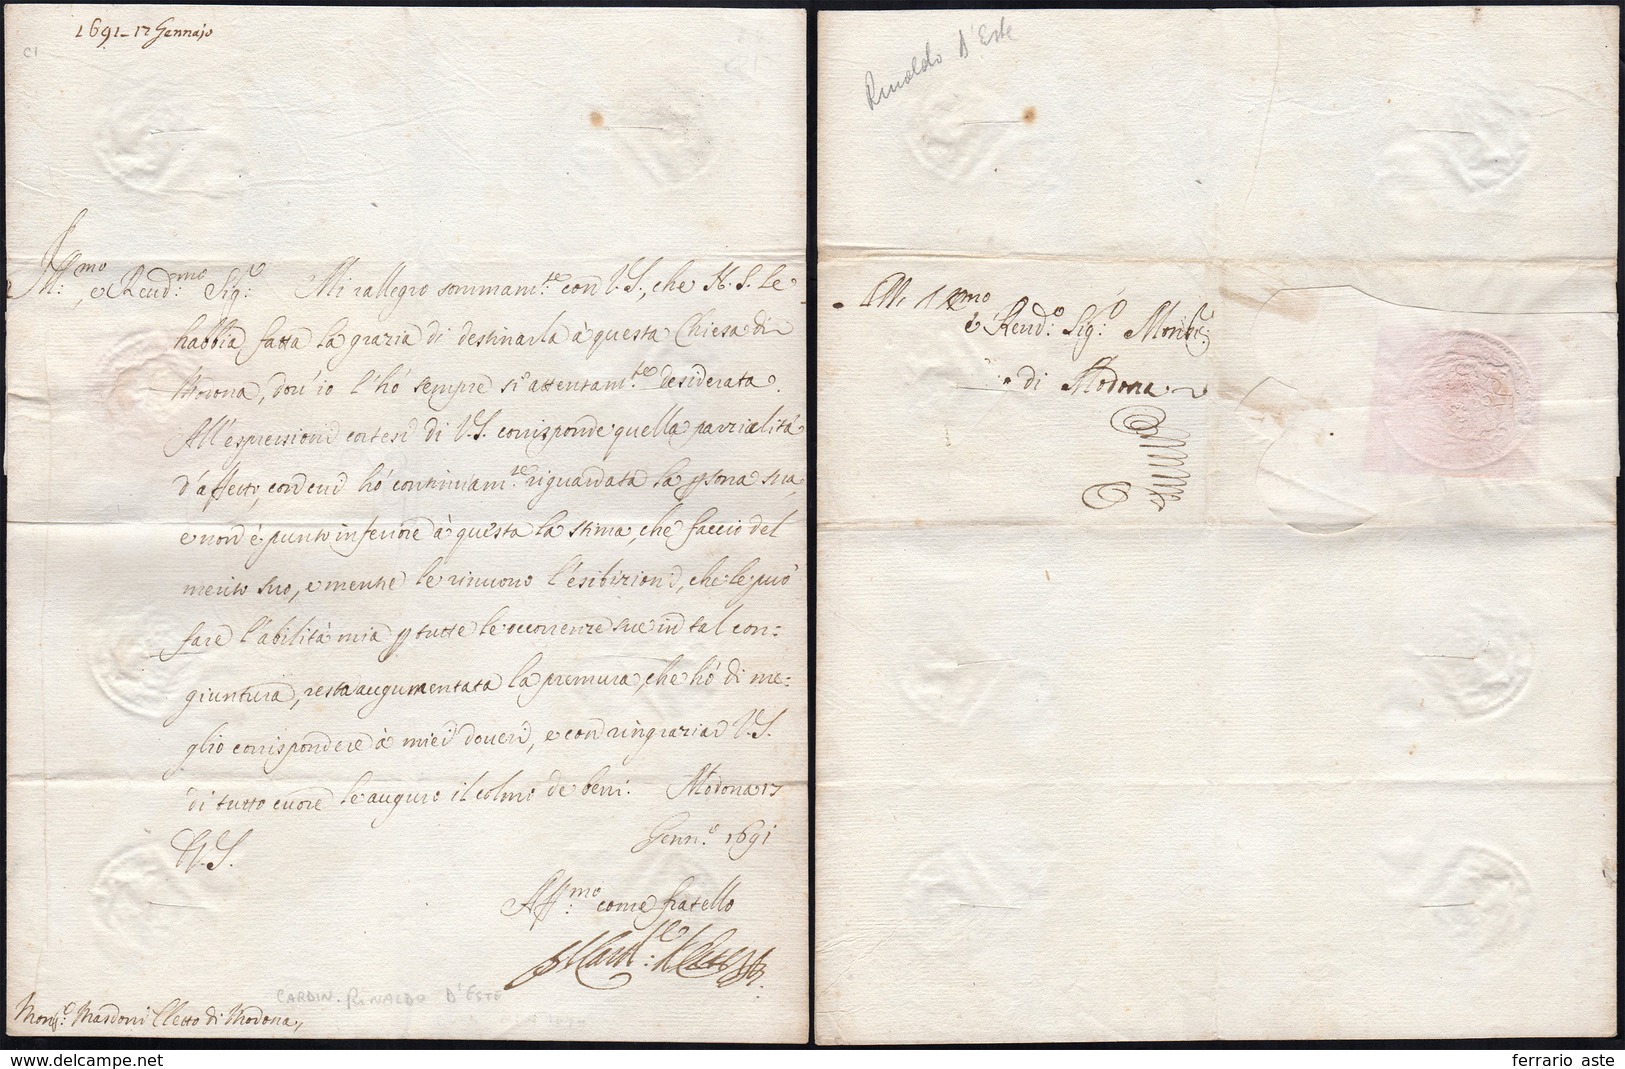 1691 - 17 Gennajo
Ill:mo e Rend:mo Sig:re Mi rallegro sommam:te con V.S., che N.S. Le
habbia fatta la grazia di destinarla à questa Chiesa di
Modona, dou'io l'hó sempre sì attentam:te desiderata.
All'espressioni cortesi di V.S. corrisponde quella parzialità
d'affetto, con cui hó continuam:te riguardata la psona sua,
e non é punto inferiore à questa la stima, che faccio del
merito suo, e mentre le rinuouo l'esibizioni, che le può
fare l'abilità mia p tutte le occorrenze sue in tal con:
giuntura, resta augumentata la premura, che hó di me:
glio corrispondere à miei doueri, e con ringraziar V.S.
di tutto cuore le auguro il colmo de beni. Modona 17
Genn:o 1691
V.S.
Aff:mo come fratello
Il Card:le d'Este
CARDIN. RINALDO D'ESTE
Mons:r Masdoni Eletto di Modona
Rinaldo D'Este
All' Ill:mo
e Rend:o Sig:r Monsr:
di Modona
ferrario aste
www.delcampe.net